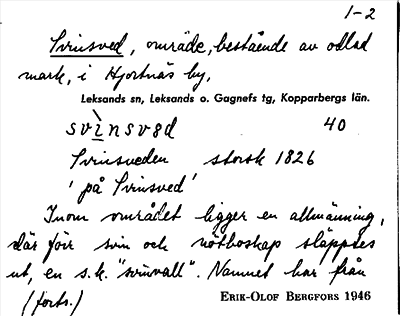 1-2
Svinsved, område, bestående av odlad
mark, i Hjortnäs by,
Leksands sn, Leksands o. Gagnefs tg, Kopparbergs län.
svìnsvəd 40
Svinsveden storsk 1826
'på Svinsved'
Inom området ligger en allmänning,
där förr svin och nötboskap släpptes
ut, en s.k. "svinvall". Namnet har från
(forts.) ERIK-OLOF BERGFORS 1946